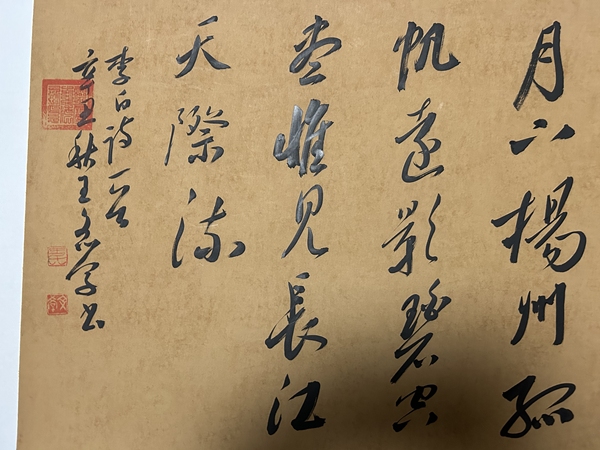 月下楊州孤
帆遠影碧空
盡惟見長江
天際流
李白詩一首
辛丑秋王書